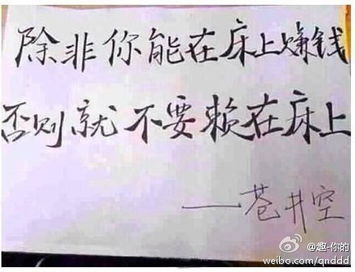 除非你能在床上赚钱
否则就不要赖在床上
——苍井空
@趣-你的
weibo.com/qnddd